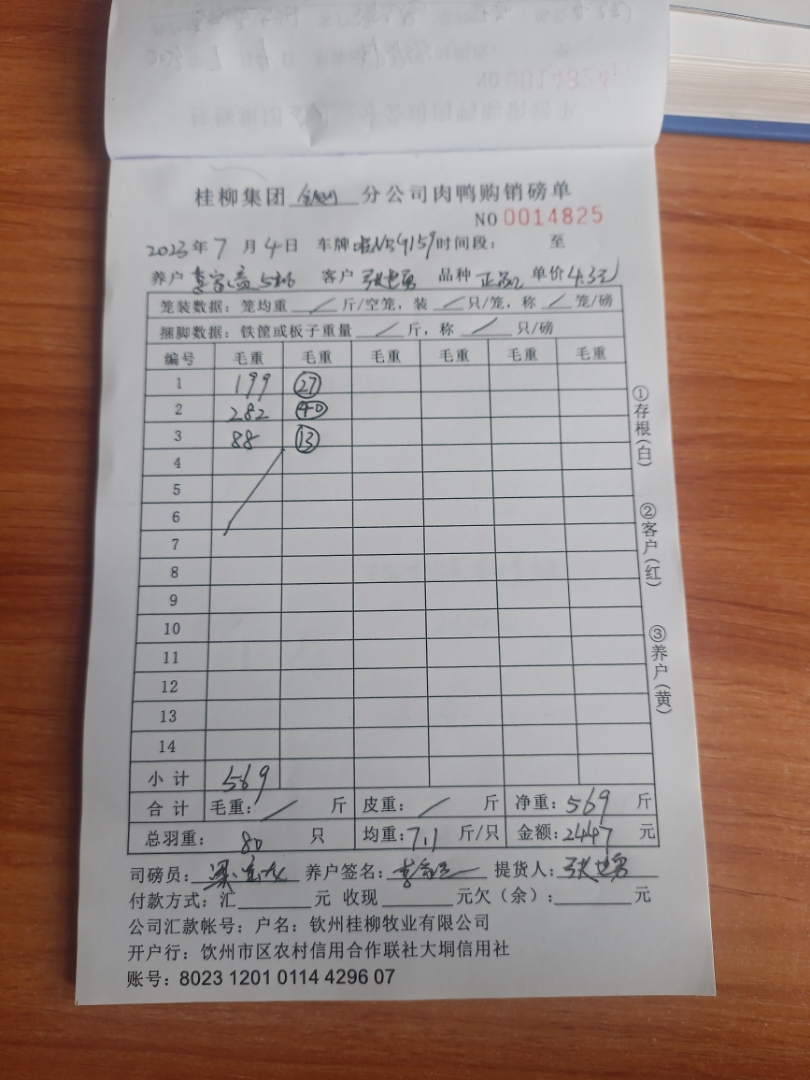 桂柳集团 钦州 分公司肉鸭购销磅单
NO 0014825
2023年 7 月 4 日 车牌 NB9159 时间段: 至
养户 客户 张世勇 品种 单价 4.3元
笼装数据: 笼均重 / 斤/空笼, 装 / 只/笼, 称 / 笼/磅
捆脚数据: 铁筐或板子重量 / 斤, 称 / 只/磅
编号 毛重 毛重 毛重 毛重 毛重 毛重
1 199 27
2 282 40
3 88 13
4
5
6
7
8
9
10
11
12
13
14
小 计 569
合 计 毛重: / 斤 皮重: / 斤 净重: 569 斤
总羽重: 80 只 均重: 7.1 斤/只 金额: 2447 元
司磅员: 养户签名: 提货人: 张世勇
付款方式: 汇 元 收现 元欠(余): 元
公司汇款帐号: 户名: 钦州桂柳牧业有限公司
开户行: 饮州市区农村信用合作联社大垌信用社
账号: 8023 1201 0114 4296 07
①存根(白)
②客户(红)
③养户(黄)